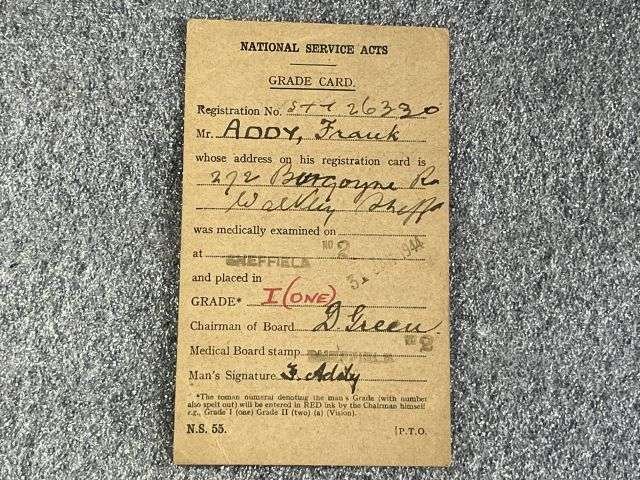 NATIONAL SERVICE ACTS
GRADE CARD.
Registration No. STT 26330
Mr. ADDY, Frank
whose address on his registration card is
272 Burgoyne Rd
Walkley Sheff
was medically examined on
at SHEFFIELD NO 2 1944
and placed in
GRADE* I (ONE)
Chairman of Board D. Green
Medical Board stamp SHEFFIELD NO 2
Man's Signature F. Addy
*The roman numeral denoting the man's Grade (with number
also spelt out) will be entered in RED ink by the Chairman himself
e.g., Grade I (one) Grade II (two) (a) (Vision).
N.S. 55. [P.T.O.